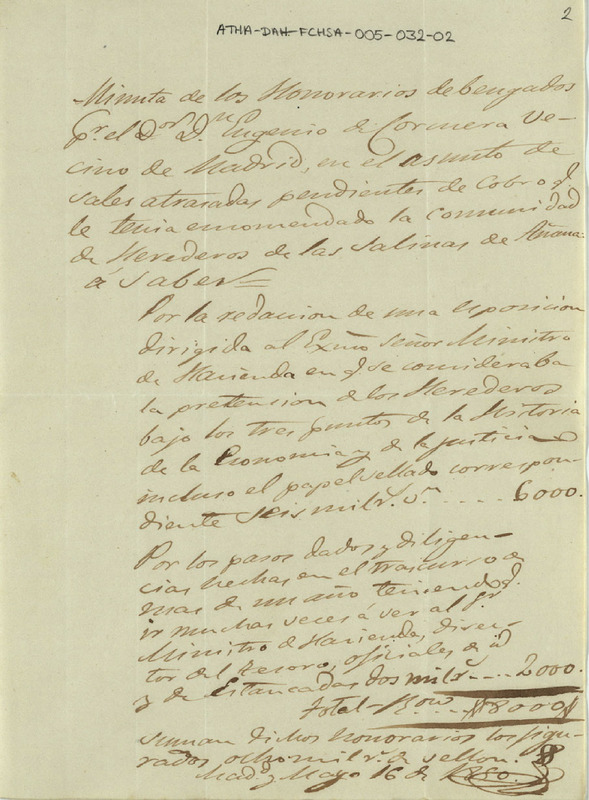 2
ATHA-DAH-FCHSA-005-032-02
Minuta de los Honorarios debengados
pr. el Dor. Dn. Eugenio de Cormera Ve-
cino de Madrid, en el asunto de
sales atrasadas pendientes de Cobro q.
le tenia encomendado la comunidad
de Herederos de las Salinas de Añana.
á saber=
Por la redaccion de una esposicion
dirigida al Exmo Señor Ministro
de Hacienda en q. se consideraba
la pretencion de los Herederos
bajo los tres puntos de la Historia
de la Economia y de la justicia
incluso el papel sellado correspon-
diente seis mil r. vn ..... 6000.
Por los pasos dados y diligen-
cias hechas en el trascurso de
mas de un año teniendo q.
ir muchas veces á ver al Sr
Ministro de Hacienda, direc-
tor del tesoro, oficiales de id
y de Estancadas dos mil r. .... 2000.
total ... 8000
suman dichos honorarios los figu-
rados ocho mil r. de vellon.
Madd. y Mayo 16 de 1850.